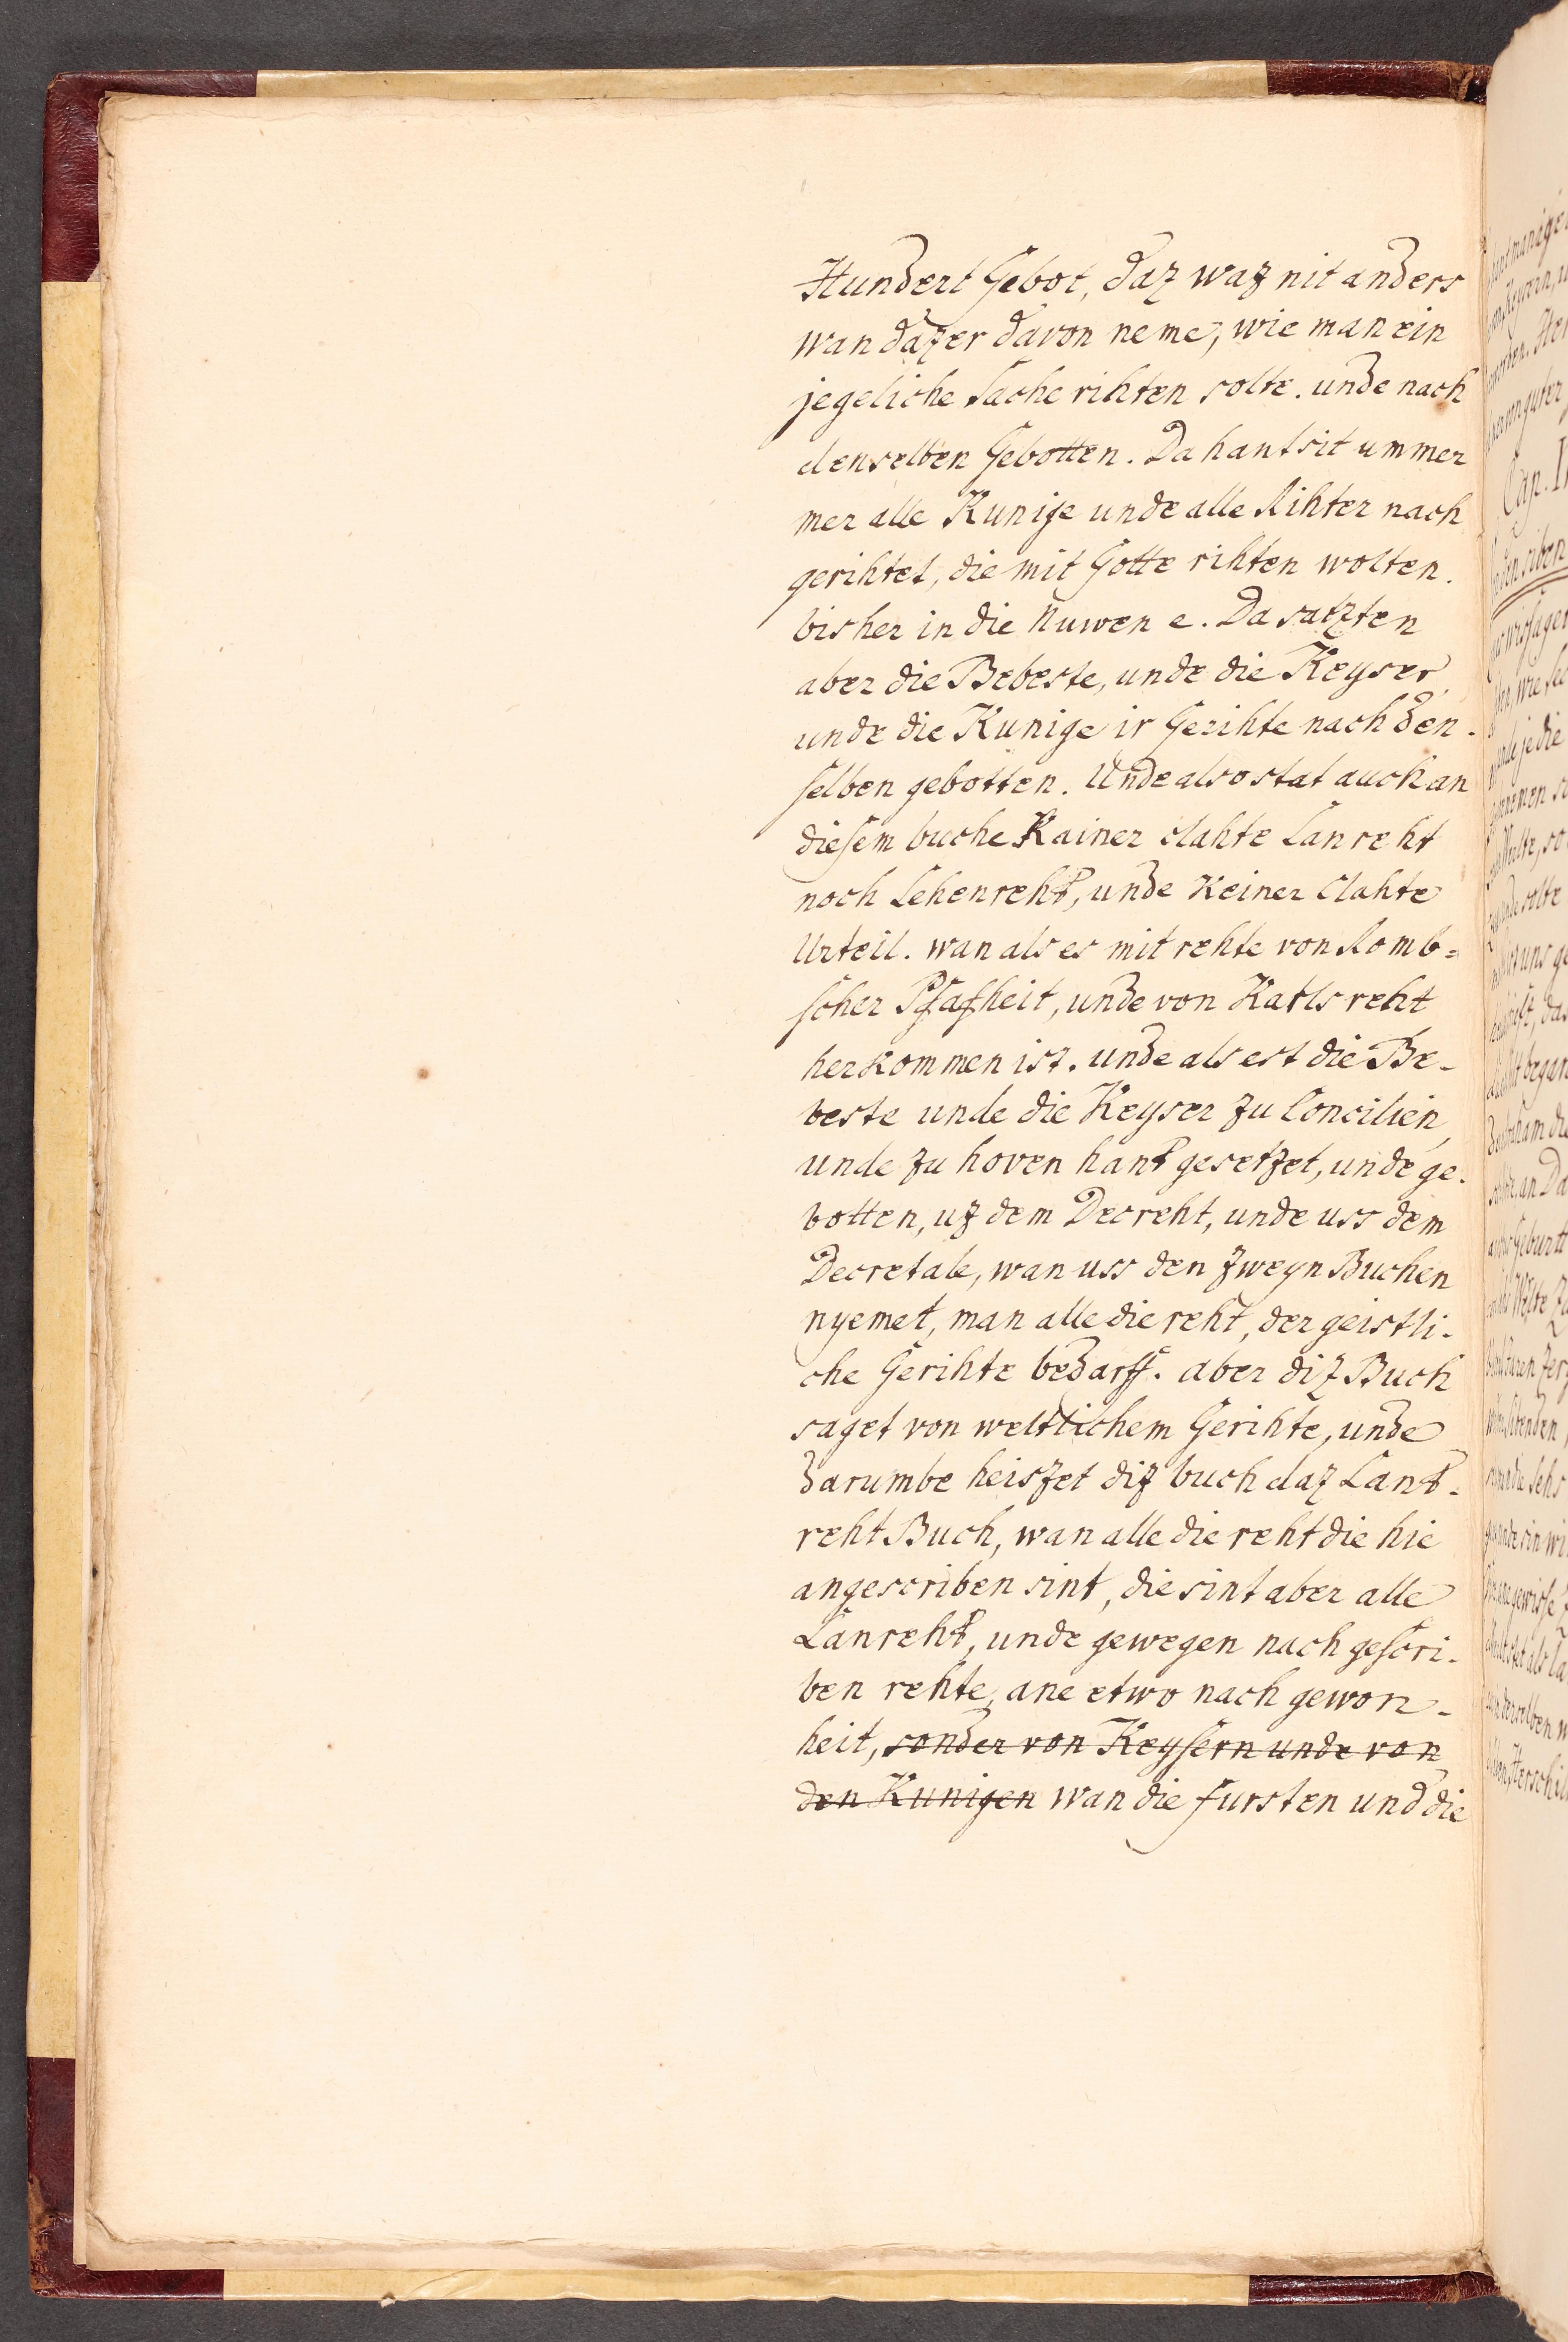 Hundert Gebot, daz waz nit anders
wan dazer davon neme, wie man ein
jegeliche Sache rihten solte. unde nach
denselben Gebotten. Da hant sit ummer
mer alle Kunige unde alle Rihter nach
gerihtet, die mit Gotte rihten wolten.
bisher in die Nuwen e. Da satzten
aber die Bebeste, unde die Keyser,
unde die Kunige ir Gerihte nach den-
selben gebotten. Unde also stat auch an
diesem buche Kainer slahte Lanreht
noch Lehenreht, unde Keiner Clahte
Urteil. wan als es mit rehte von Romb=
scher Pfafheit, unde von Karls reht
herkommen ist. unde als est die Be-
beste unde die Keyser zu Concilien,
unde zu hoven hant gesetzet, unde ge-
botten, uz dem Decreht, unde uss dem
Decretale, wan uss den zweyn Buchen
nyemet, man alle die reht, der geistli-
che Gerihte bedarff. aber diz Buch
saget von weltlichem Gerihte, unde
darumbe heiszet diz buch daz Lant-
reht Buch, wan alle die reht die hie
angescriben sint, die sint aber alle
Lanreht, unde gewegen nach gescri-
ben rehte, ane etwo nach gewon-
heit, sonder von Keysern unde von
den Kunigen wan die fursten und die